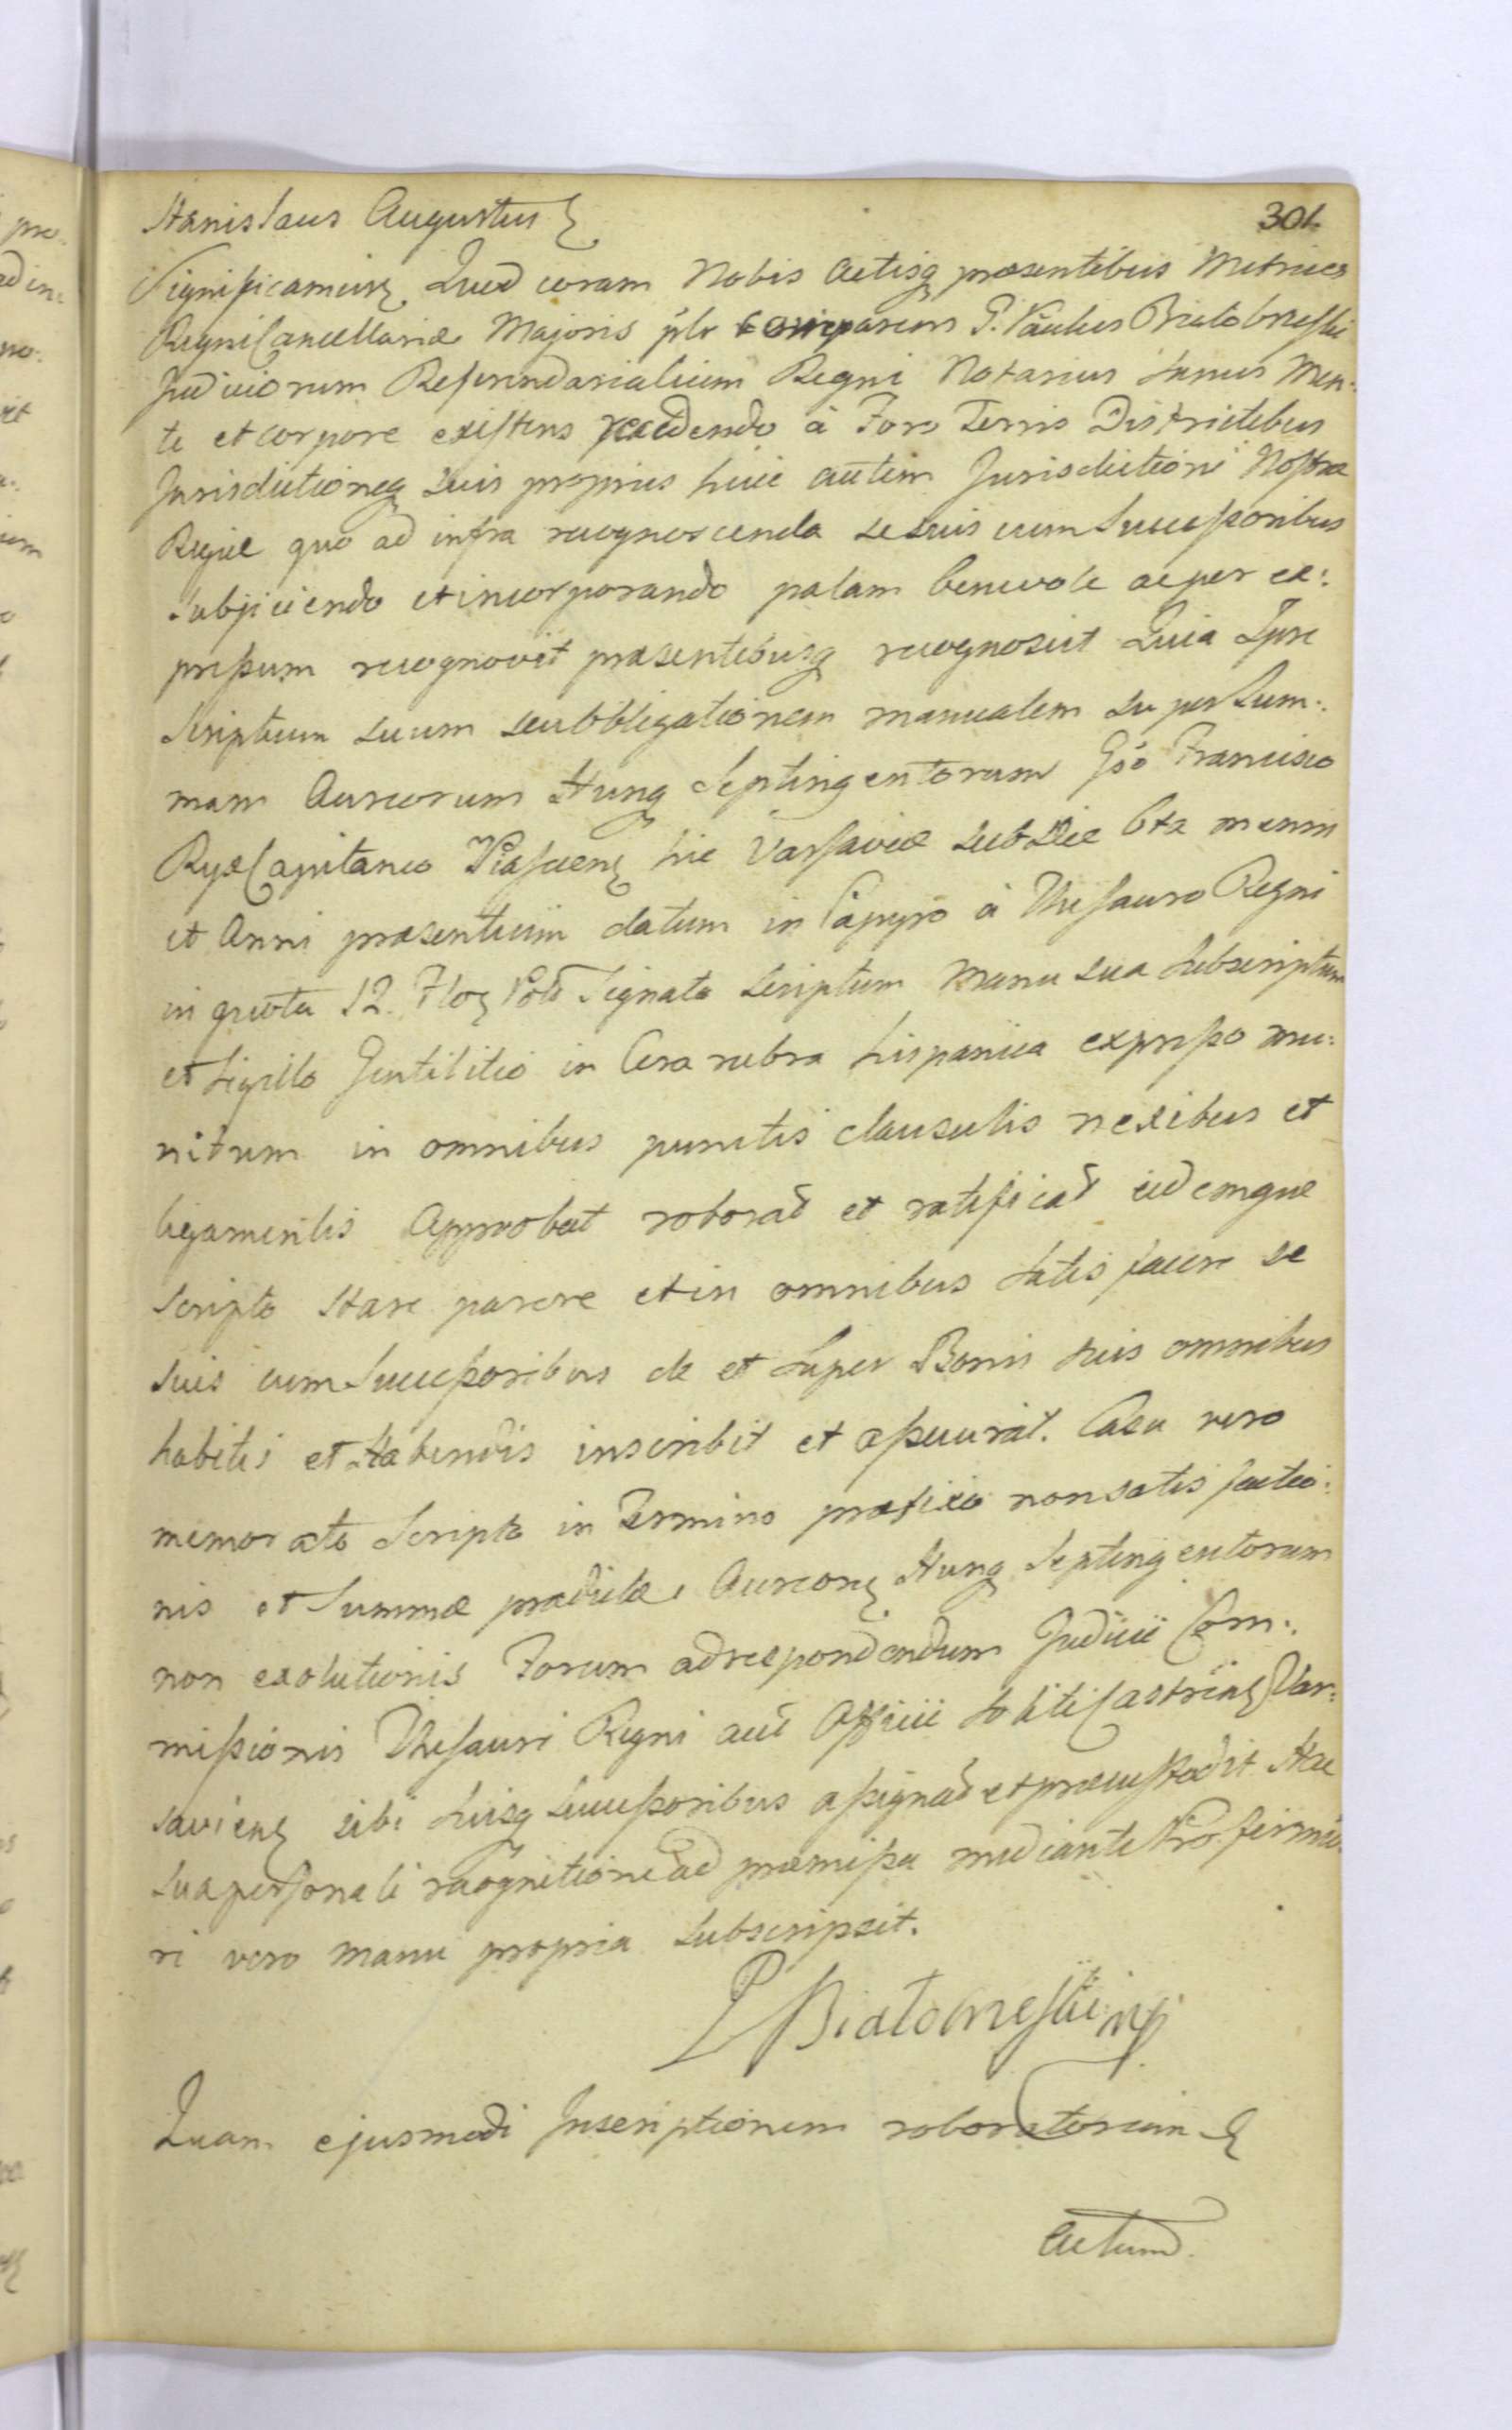 301.
Stanislaus Augustus
Significamus Quod coram Nobis Actisq præsentibus Metrices
Regni Cancellariæ Majoris plr comparens G. Paulus Białobrzeski
Judiciorum Referendarialium Regni Notarius sanus Men:
te et corpore existens recedendo à Foro Terris Districtibus
Jurisdictioneq suis propriis huic autem Jurisdictioni Nostræ
Regiæ quo ad infra recognoscenda se suis cum Successoribus
subjiciendo et incorporando palam benevole ac per ex:
pressum recognovit præsentibusq recognoscit Quia Ipse
Scriptum suum seu obligationem manualem super Sum:
mam Aureorum Hung Septingentorum Gso Francisco
Ryx Capitaneo Piaseen hic Varsaviæ sub Die 6ta mensis
et Anni præsentium datum in Papyro à Thesauro Regni
in quota 12. Flor Pol Signata scriptum Manu sua subscriptum
et Sigillo Gentilitio in Cera rubra hispanica expresso mu:
nitum in omnibus punctis clausulis nexibus et
ligamentis Approbat roborat et ratificat eidemque
Scripto stare parere et in omnibus satisfacere se
suis cum Successoribus de et super Bonis suis omnibus
habitis et Habendis inscribit et assecurat. Casu vero
memorato Scripto in Termino præfixo non satisfactio:
nis et Summæ prædictæ Aureor Hung Septingentorum
non exolutionis Forum ad respondendum Judicii Com:
missionis Thesauri Regni aut Officii soliti Castren Var:
savien sibi suisq Successoribus assignat et præcustodit Hac
sua personali recognitione ad præmissa mediante Pro firmio:
ri vero manu propria subscripsit.
P Białobrzeski mp
Quam ejusmodi Inscriptionem roboratoriam
Actum